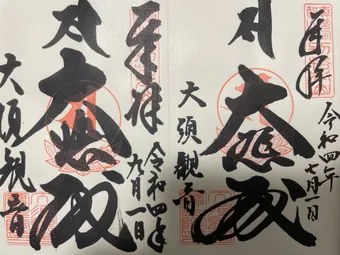 奉拝
令和四年
七月一日
大悲殿
大須観音
奉拝
令和四年
九月一日
大悲殿
大須観音